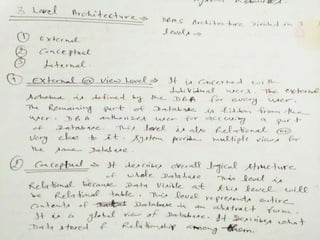 3 Level Architecture → DBMS Architecture Divided in 3
levels →
① External
② Conceptual
③ Internal.
① External @ View Level → It is Concerned with
Individual users. The external
Schema is defined by the DBA for every user.
The Remaining part of Database is hidden from the
user. DBA authorizes user for accessing a part
of Database. This level is also Relational @
very close to it. System provides multiple views for
the same Database
② Conceptual → It describes overall logical structure
of whole Database. This level is
Relational because Data Visible at this level will
be Relational table. This level represents entire
Contents of Database in an abstract form.
It is a global view of Database. It Describes what
Data stored & Relationship among them.